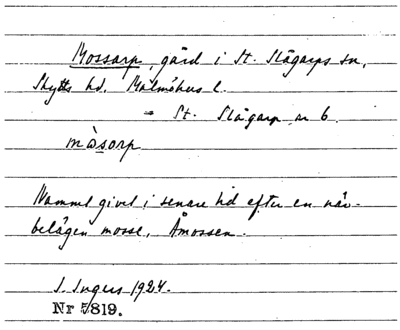 Mossarp, gård i St. Slågarps sn,
Skytts hd. Malmöhus l.
= St. Slågarp nr 6.
måsorp
Namnet givet i senare tid efter en när-
belägen mosse, Åmossen.
I. Ingers 1924.
Nr 5819.